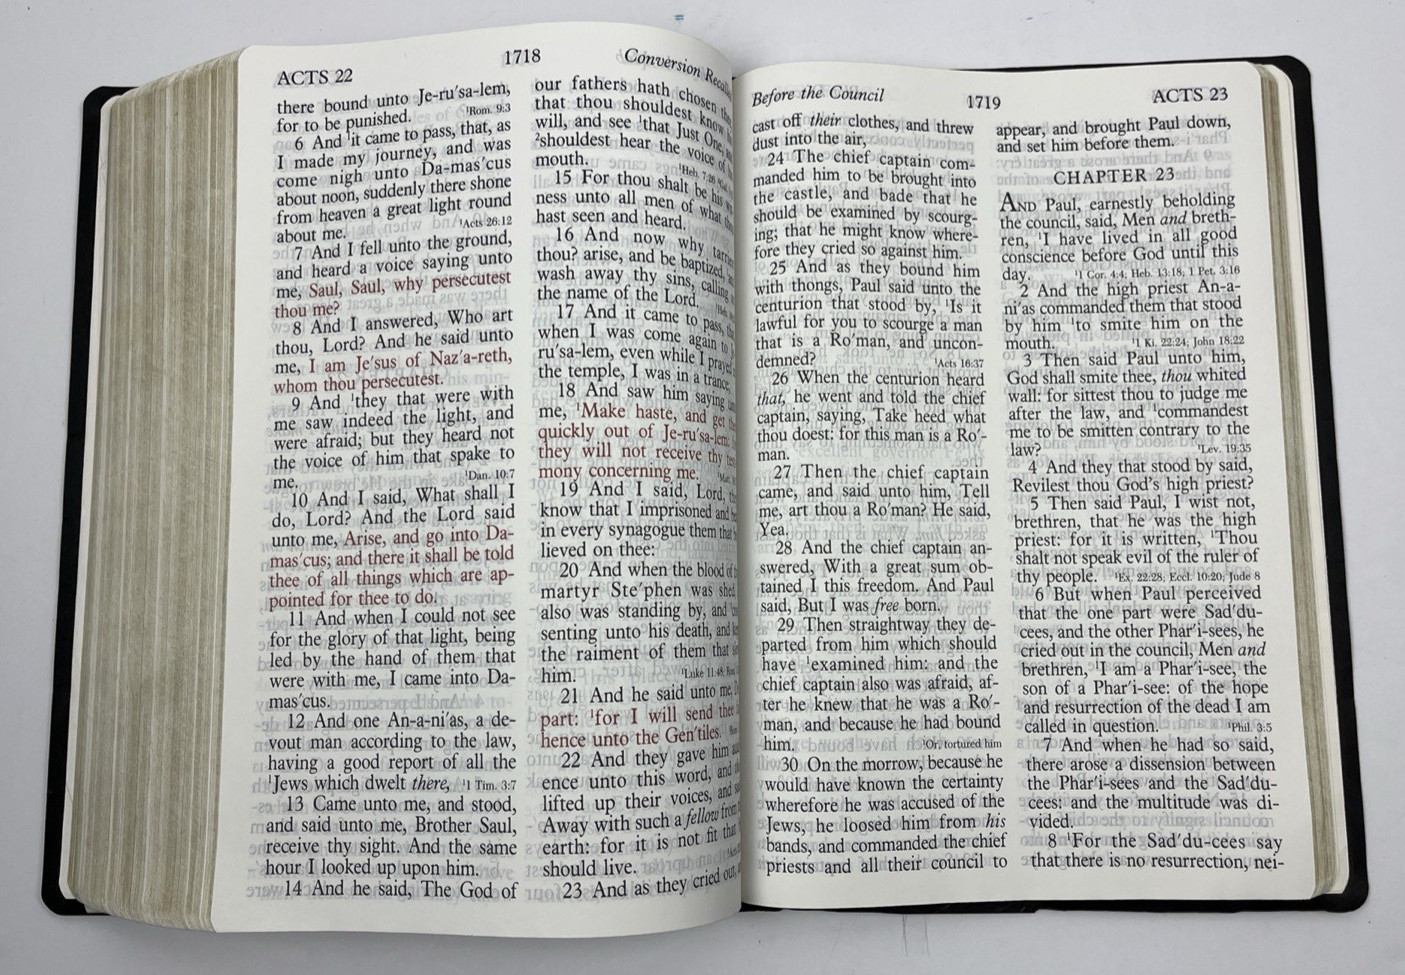 ACTS 22
1718
Conversion
there bound unto Je-ru'sa-lem,
for to be punished. ¹Rom. 9:3
6 And ¹it came to pass, that, as
I made my journey, and was
come nigh unto Da-mas'cus
about noon, suddenly there shone
from heaven a great light round
about me. ¹Acts 26:12
7 And I fell unto the ground,
and heard a voice saying unto
me, Saul, Saul, why persecutest
thou me?
8 And I answered, Who art
thou, Lord? And he said unto
me, I am Je'sus of Naz'a-reth,
whom thou persecutest.
9 And ¹they that were with
me saw indeed the light, and
were afraid; but they heard not
the voice of him that spake to
me. ¹Dan. 10:7
10 And I said, What shall I
do, Lord? And the Lord said
unto me, Arise, and go into Da-
mas'cus; and there it shall be told
thee of all things which are ap-
pointed for thee to do.
11 And when I could not see
for the glory of that light, being
led by the hand of them that
were with me, I came into Da-
mas'cus.
12 And one An-a-ni'as, a de-
vout man according to the law,
having a good report of all the
¹Jews which dwelt there, ¹1 Tim. 3:7
13 Came unto me, and stood,
and said unto me, Brother Saul,
receive thy sight. And the same
hour I looked up upon him.
14 And he said, The God of
our fathers hath chosen
that thou shouldest know
will, and see ¹that Just One,
²shouldest hear the voice of
mouth. ¹Heb. 7:26
15 For thou shalt be his
ness unto all men of what
hast seen and heard.
16 And now why
thou? arise, and be baptized,
wash away thy sins, calling
the name of the Lord.
17 And it came to pass,
when I was come again to
ru'sa-lem, even while I prayed
the temple, I was in a trance;
18 And saw him saying
me, ¹Make haste, and get
quickly out of Je-ru'sa-lem:
they will not receive thy
mony concerning me.
19 And I said, Lord,
know that I imprisoned and
in every synagogue them that
lieved on thee:
20 And when the blood of
martyr Ste'phen was shed,
also was standing by, and
senting unto his death, and
the raiment of them that
him. ¹Luke 11:48
21 And he said unto me,
part: ¹for I will send thee
hence unto the Gen'tiles.
22 And they gave him
ence unto this word, and
lifted up their voices, and
Away with such a fellow from
earth: for it is not fit that
should live.
23 And as they cried out,
Before the Council
1719
ACTS 23
cast off their clothes, and threw
dust into the air,
24 The chief captain com-
manded him to be brought into
the castle, and bade that he
should be examined by scourg-
ing; that he might know where-
fore they cried so against him.
25 And as they bound him
with thongs, Paul said unto the
centurion that stood by, ¹Is it
lawful for you to scourge a man
that is a Ro'man, and uncon-
demned? ¹Acts 16:37
26 When the centurion heard
that, he went and told the chief
captain, saying, Take heed what
thou doest: for this man is a Ro'-
man.
27 Then the chief captain
came, and said unto him, Tell
me, art thou a Ro'man? He said,
Yea.
28 And the chief captain an-
swered, With a great sum ob-
tained I this freedom. And Paul
said, But I was free born.
29 Then straightway they de-
parted from him which should
have ¹examined him: and the
chief captain also was afraid, af-
ter he knew that he was a Ro'-
man, and because he had bound
him. ¹Or, tortured him
30 On the morrow, because he
would have known the certainty
wherefore he was accused of the
Jews, he loosed him from his
bands, and commanded the chief
priests and all their council to
appear, and brought Paul down,
and set him before them.
CHAPTER 23
AND Paul, earnestly beholding
the council, said, Men and breth-
ren, ¹I have lived in all good
conscience before God until this
day. ¹1 Cor. 4:4; Heb. 13:18; 1 Pet. 3:16
2 And the high priest An-a-
ni'as commanded them that stood
by him ¹to smite him on the
mouth. ¹1 Ki. 22:24; John 18:22
3 Then said Paul unto him,
God shall smite thee, thou whited
wall: for sittest thou to judge me
after the law, and ¹commandest
me to be smitten contrary to the
law? ¹Lev. 19:35
4 And they that stood by said,
Revilest thou God's high priest?
5 Then said Paul, I wist not,
brethren, that he was the high
priest: for it is written, ¹Thou
shalt not speak evil of the ruler of
thy people. ¹Ex. 22:28; Eccl. 10:20; Jude 8
6 But when Paul perceived
that the one part were Sad'du-
cees, and the other Phar'i-sees, he
cried out in the council, Men and
brethren, ¹I am a Phar'i-see, the
son of a Phar'i-see: of the hope
and resurrection of the dead I am
called in question. ¹Phil. 3:5
7 And when he had so said,
there arose a dissension between
the Phar'i-sees and the Sad'du-
cees: and the multitude was di-
vided.
8 ¹For the Sad'du-cees say
that there is no resurrection, nei-